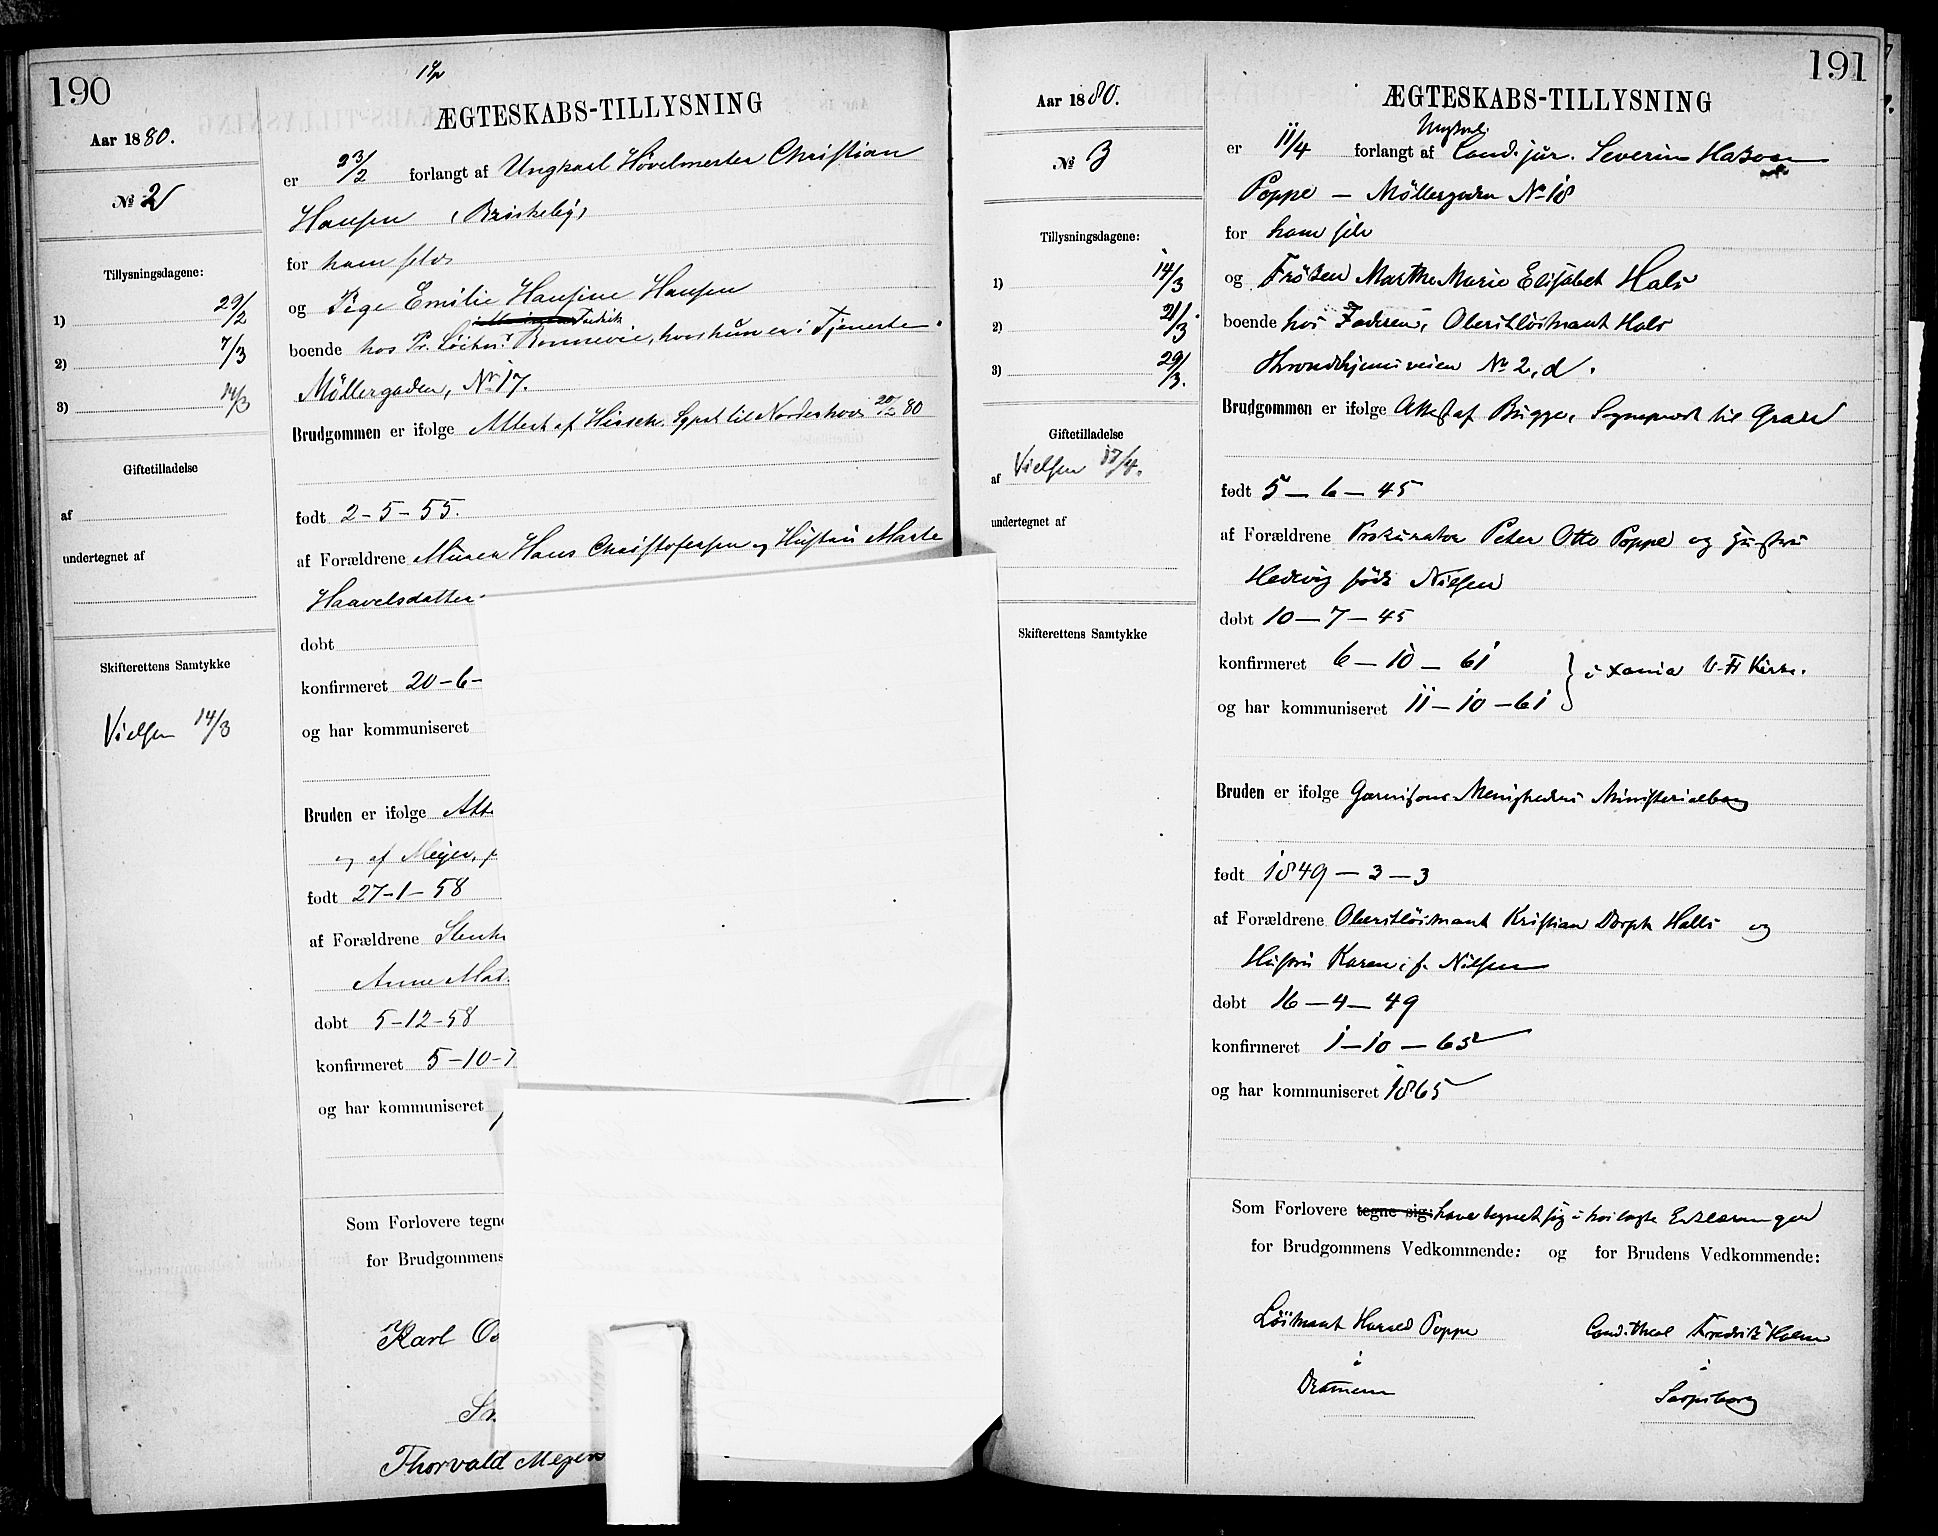 190
Aar 1880.
№ 2
Tillysningsdagene:
1) 29/2
2) 7/3
3) 14/3
Giftetilladelse
af
undertegnet af
Skifterettens Samtykke
Vielsen 14/3
ÆGTESKABS-TILLYSNING
er 23/2 forlangt af Ungkarl Høvelmester Christian
Hansen (Briskeby)
for ham selv
og Pige Emilie Hansine Hansen
boende hos Bonnevie, hvor hun er i Tjeneste.
Möllergaden, № 17.
Brudgommen er ifølge Attest af Sgprst til Norderhov 20/2 80
født 2-5-55.
af Forældrene Murer Hans Christofersen og Hustru Marte
Haavelsdatter
døbt
konfirmeret 20-6-
og har kommuniseret
Bruden er ifølge Att
og af Meyer,
født 27-1-58
af Forældrene
Anne Mat
døbt 5-12-58
konfirmeret 5-10-7
og har kommuniseret
Som Forlovere tegne
for Brudgommens
Karl
Thorvald Meyers
191
Aar 1880.
№ 3
Tillysningsdagene:
1) 14/3
2) 21/3
3) 29/3.
Giftetilladelse
af Vielsen 17/4.
undertegnet af
Skifterettens Samtykke
ÆGTESKABS-TILLYSNING
Ungkarl
er 11/4 forlangt af Cand. jur. Severin
Poppe — Möllergaden № 18
for ham selv
og Frøken Marthe Marie Elisabet Hals
boende hos Faderen, Oberstløitnant Hals
Throndhjemsveien № 2, d.
Brudgommen er ifølge Attest af Bugge, Sogneprest til Gran
født 5 — 6 — 45
af Forældrene Prokurator Peter Otto Poppe og Hustru
Hedevig født Nielsen
døbt 10 — 7 — 45
konfirmeret 6 — 10 — 61 } i Xania V. Fr Kirke.
og har kommuniseret 11 — 10 — 61
Bruden er ifølge Garnisons-Menighedens Ministerialbog
født 1849 — 3 — 3
af Forældrene Oberstløitnant Kristian Dorph Hals og
Hustru Karen, f. Nilsen
døbt 16 — 4 — 49
konfirmeret 1 — 10 — 65
og har kommuniseret 1865
Som Forlovere tegne sig: have tegnet sig i hoslagte Erklæringer
for Brudgommens Vedkommende: og for Brudens Vedkommende:
Løitnant Harald Poppe Cand. theol Fredrik Holm
Dramen Sarpsborg